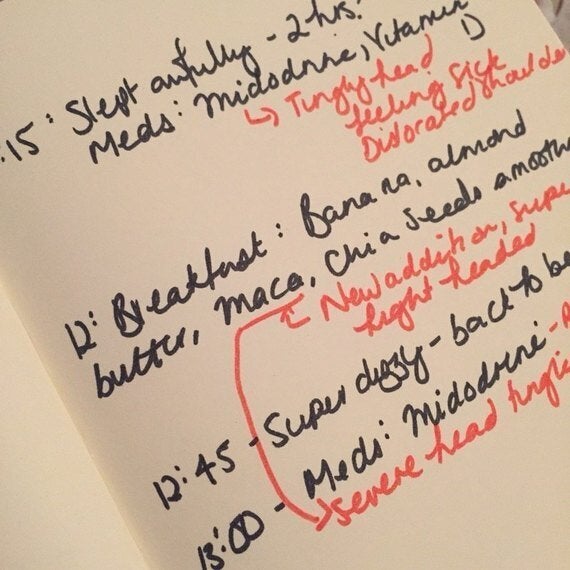 :15: Slept awfully - 2 hrs.
Meds: Midodrine, Vitamin D
↳ Tingly head
feeling sick
Dislocated shoulde
12: Breakfast: Banana, almond
butter, maca, chia seeds smooth
New addition, supe
light headed
12:45 - Super dizzy - back to be
13:00 - Meds: Midodrine -
severe head tingl